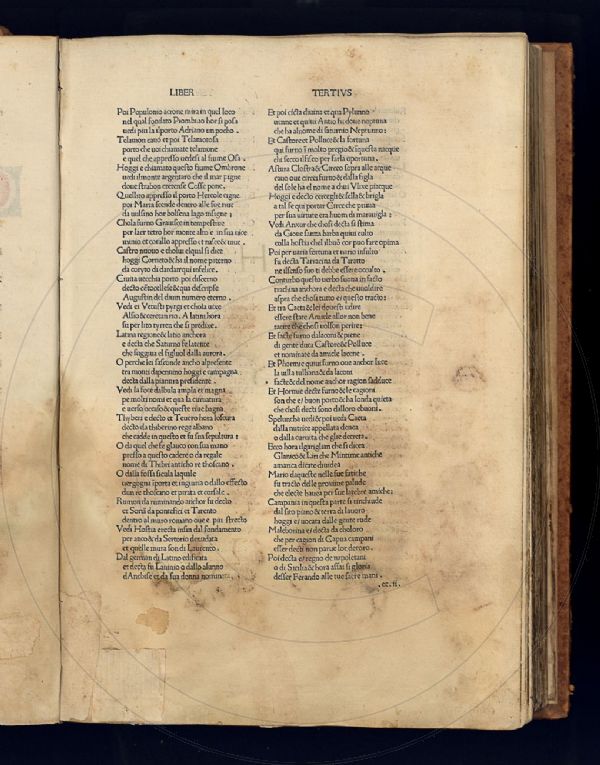 LIBER TERTIVS
Poi Populonio acrone mira in quel loco
nel qual fondato Piombino hor si posa
uedi piu la il porto Adriano un pocho .
Telamon cauo et poi Telamorosa
porto che uoi chiamate telamone
e quel che appresso uedesi al fiume Osa .
Hoggi e chiamato questo fiume Ombrone
uedi il monte argentaro che il mar pigne
doue strabon ceterense Cosse pone .
Qui oltro appresso il porto Hercole cigne
poi Maria scende dentro alle sue rue
da uulsino hor bolsena lago insigne ;
Chola furno Grausce intempestiue
per laer tetro hor monte alto e in sua uice
Castro nuouo e cholui el qual si dice
hoggi Corneto & ha il nome paterno
da coryto da dardar qui infelice .
Ciuita uecchia porto poi discerno
decto cestocelle si & qua descripse
Augustin del diuin numero eterno .
Vedi et Vetusti pyrga et chola acce
Alsio & ceretan rio . A latini hora
su per lito tyrren che si predixe .
Latina regione & latio anchora
e decta che Saturno fe latente
che fuggiua el figluol dalla aurora .
O perche lei sasconde ancho al presente
tra monti dapennino hoggi e campagna
decta dalla pianura presidente .
Vedi la foce dalbula ampia et magna
pe molti nomi et qua la curuatura
e uerso occaso & queste riue bagna
Thybere e decto et Teuero hora lostura
decto da thiberino rege albano
che cadde in questo et fu sua sepultura :
O da quel che fe glauco con sua mano
presso a questo cadere o da regale
nome di Thebri anticho re thoscano .
O dalla fossa sicula laquale
uergogna sporta et inguiria o dallo effecto
dun re thoscano et pirata et corsale .
Rumon da ruminando anchor fu decto
et Serra da pontefici et Tarento
dentro al muro romano oue e piu strecto
Vedi Hostia erecta insin dal fondamento
per anco & da Sertorio denudata
et quelle mura son di Laurento .
Dal german di Latino edificata
et decta fu Lauinio o dallo alunno
dAnchise et da sua donna nominata .
Et poi cicta diuina et qua Pylunno
uenne et quiui Antio fu doue neptuna
che ha al nome di saturnio Neptunno :
Et Castore et Polluce & la fortuna
qui furno i molto pregio & i questa nacque
chi secco il fisco per farla oportuna .
Astura Clostra & Circeo sopra alle acque
cauo oue circea furno & dalla figla
del sole ha el nome a chui Vlixe piacque
Hoggi e decto cercegli & sella & brigla
a tisse qui portar Circe che prima
per sua uirtute era huom da marauigla ;
Vedi Anxur che chosi decta si stima
da Gioue sanza barba quiui culto
colla hostia che el libuo cor puo fare opima
Poi per uaria fortuna et uario insulto
fu decta Tarracina da Taratto
ne il senso suo ti debbe essere occulto .
Conturbo questo uerbo suona in facto
trachina anchora e decta che uuol dire
aspra che chosi tutto e questo tracto :
Et tra Caeta & lei deuesti udire
essere stare Amicle allor non bene
tacite che chosi uolson perire :
Et facte furno da laconi & piene
di gente dura Castore & Polluce
et nominate da amicle lacene .
Et Phormie quiui furno oue anchor luce
la uilla tulliona & da laconi
facte & del nome anchor ragion sadduce
Et Hormie decte furno & le cagioni
son che e buon porto & ha londa quieta
che chosi decti sono dalloro ebuoni .
Speluncha uedi & poi ueda Caeta
dalla nutrice appellata denea
o dalla caruita che glie decreta .
Ecco hora il gariglian che si dicea
Glanico & Liri che Minturne antiche
amanca dicate diuidea
Mario da queste nelle sue fatiche
fu tracto delle proxime palude
che electe hauea per sue latebre amiche ;
Campania in questa parte si rinchiude
dal sito piano & terra di lauoro
hoggi e uocata dalle gente rude
Maleborina e decta da choloro
che per cagion di Capua campani
esser decti non parue lor decoro .
Poi decta e regno de napoletani
o di Sicilia & hora assai si gloria
desser Ferando alle tue sacre mani .
.cc.ii.